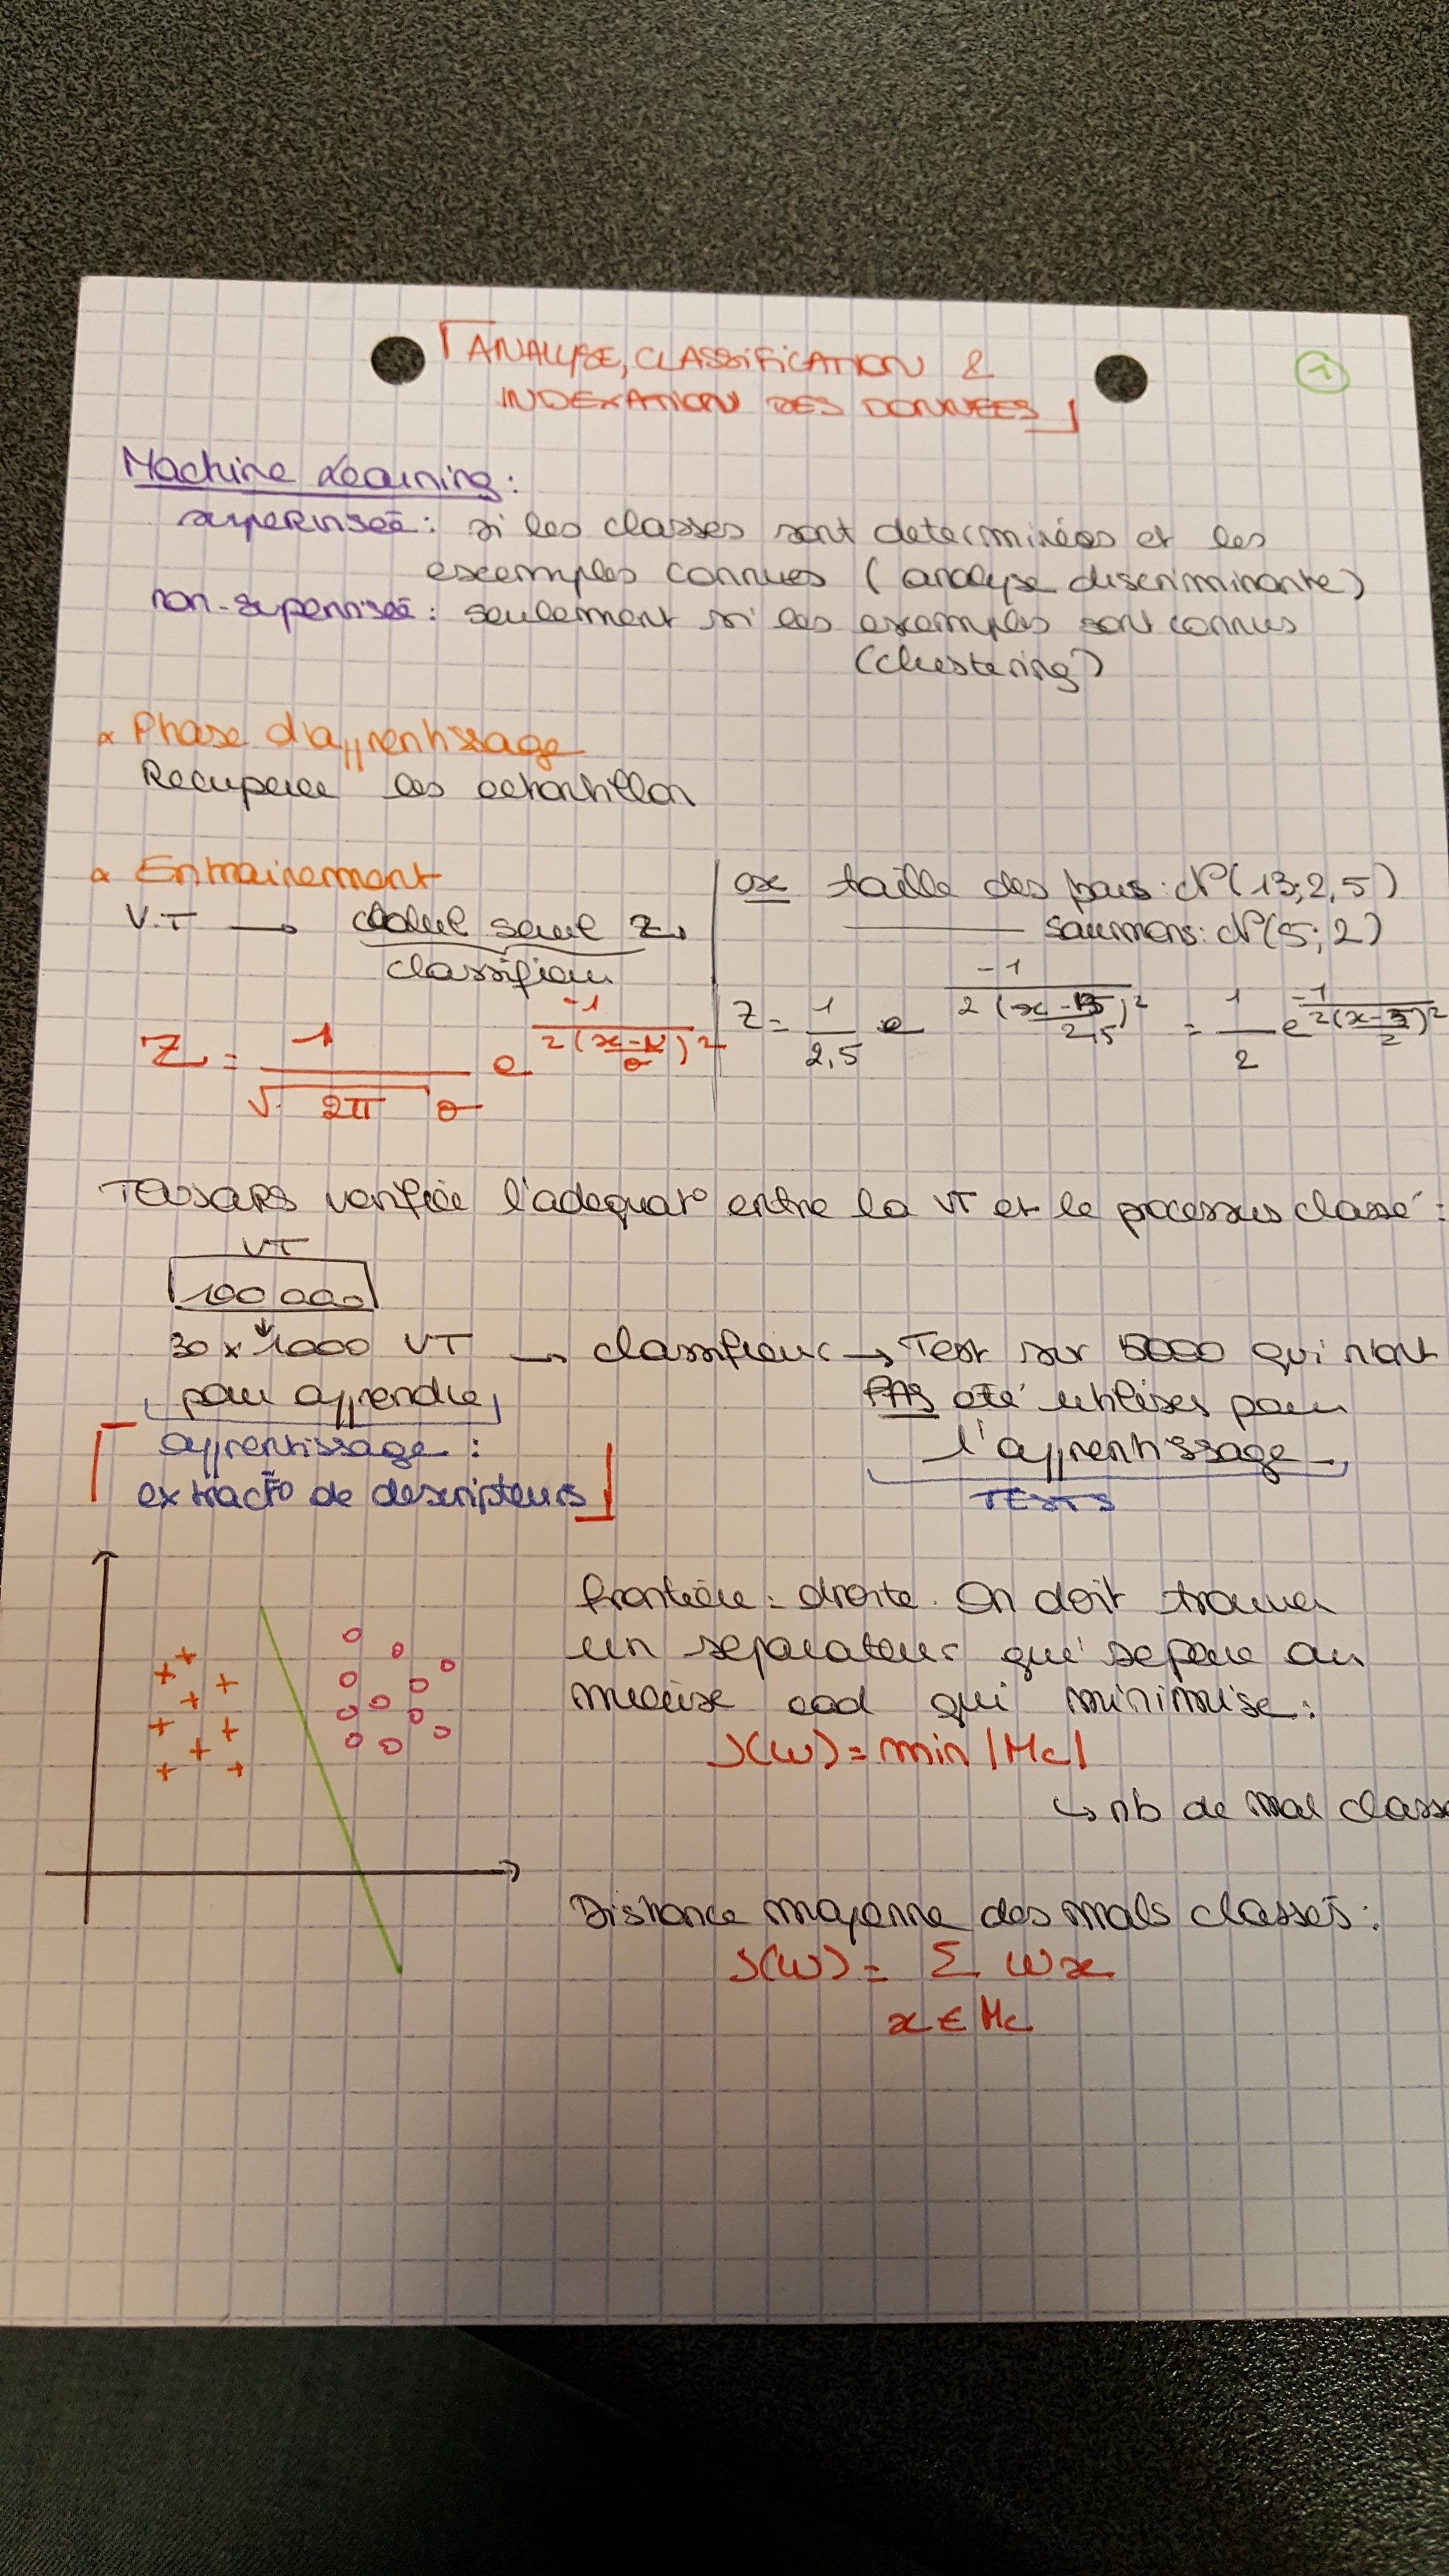 ANALYSE, CLASSIFICATION &
INDEXATION DES DONNEES
1
Machine Learning :
supervisée : si les classes sont determinées et les
exemples connues (analyse discriminante)
non-supervisée : seulement si les exemples sont connus
(clustering)
Phase d'apprentissage
Recuperer les echantillon
Entrainement
V.T → calcul seuil Z
classifieur
Z = 1 / √2π σ e -1 / 2(x-μ / σ)²
ex taille des bars : N(13; 2,5)
saumons : N(5; 2)
Z = 1 / 2,5 e -1 / 2(x-13 / 2,5)² = 1 / 2 e -1 / 2(x-5 / 2)²
verifiée l'adequat° entre la VT et le processus classé :
VT
100 000
30 x 1000 VT → classifieur → Test sur 5000 qui n'ont
pour apprendre
PAS été utilisés pour
l'apprentissage
apprentissage :
extract° de descripteurs
TESTS
frontière = droite. On doit trouver
un separateur qui separe au
mieux cad qui minimise :
J(w) = min |Mc|
↳ nb de mal classé
Distance moyenne des mals classés :
J(w) = Σ wx
x ∈ Mc